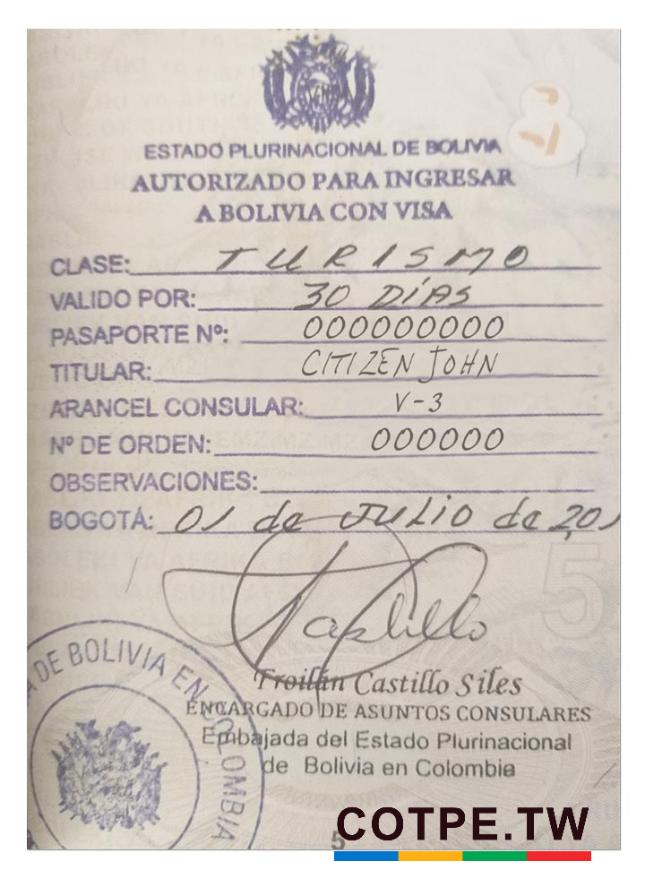 ESTADO PLURINACIONAL DE BOLIVIA
AUTORIZADO PARA INGRESAR
A BOLIVIA CON VISA
CLASE: TURISMO
VALIDO POR: 30 DÍAS
PASAPORTE Nº: 000000000
TITULAR: CITIZEN JOHN
ARANCEL CONSULAR: V-3
Nº DE ORDEN: 000000
OBSERVACIONES:
BOGOTÁ: 01 de JULIO de 201
Castillo
Troilán Castillo Siles
ENCARGADO DE ASUNTOS CONSULARES
Embajada del Estado Plurinacional
de Bolivia en Colombia
DE BOLIVIA EN COLOMBIA
5
5
COTPE.TW